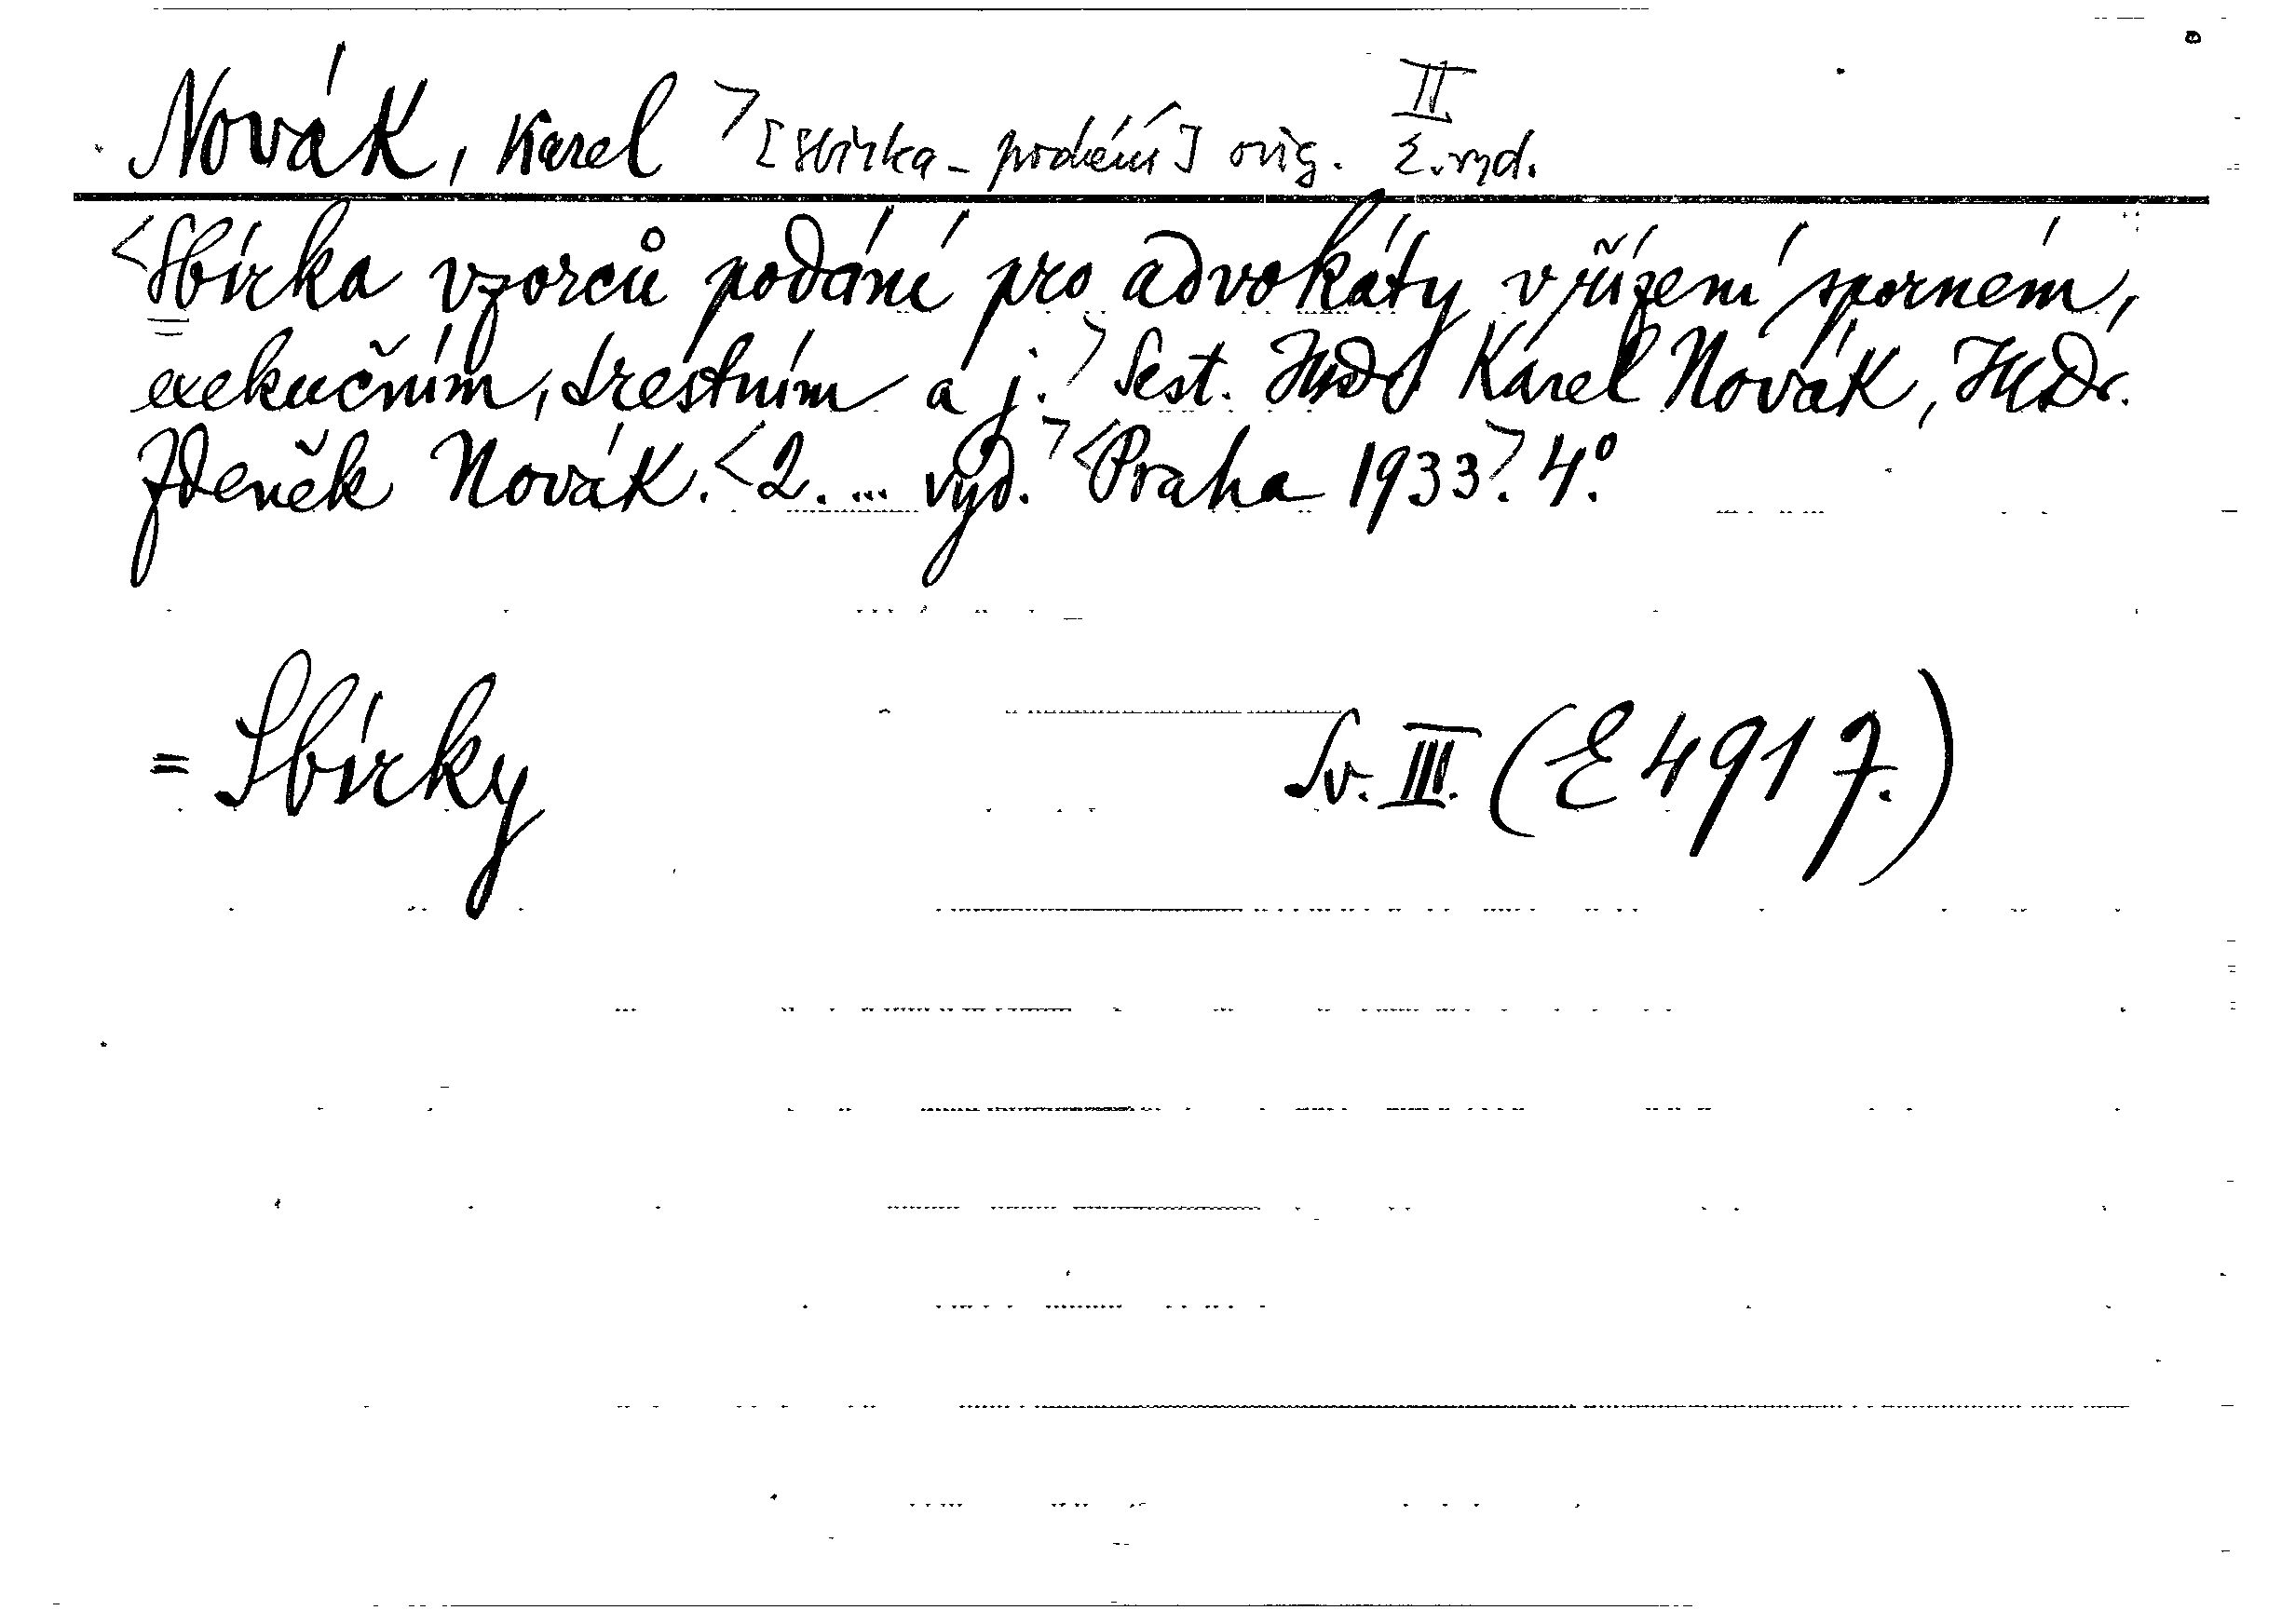 Novák, Karel > [Sbírka - podání] orig. II 2. vyd.
<Sbírka vzorců podání pro advokáty v řízení sporném,
exekučním, trestním a j.> Sest. JUDr Karel Novák, JUDr.
Zdeněk Novák. <2. ... vyd.> <Praha 1933>. 4°.
= Sbírky Sv. III. (E 4917.)